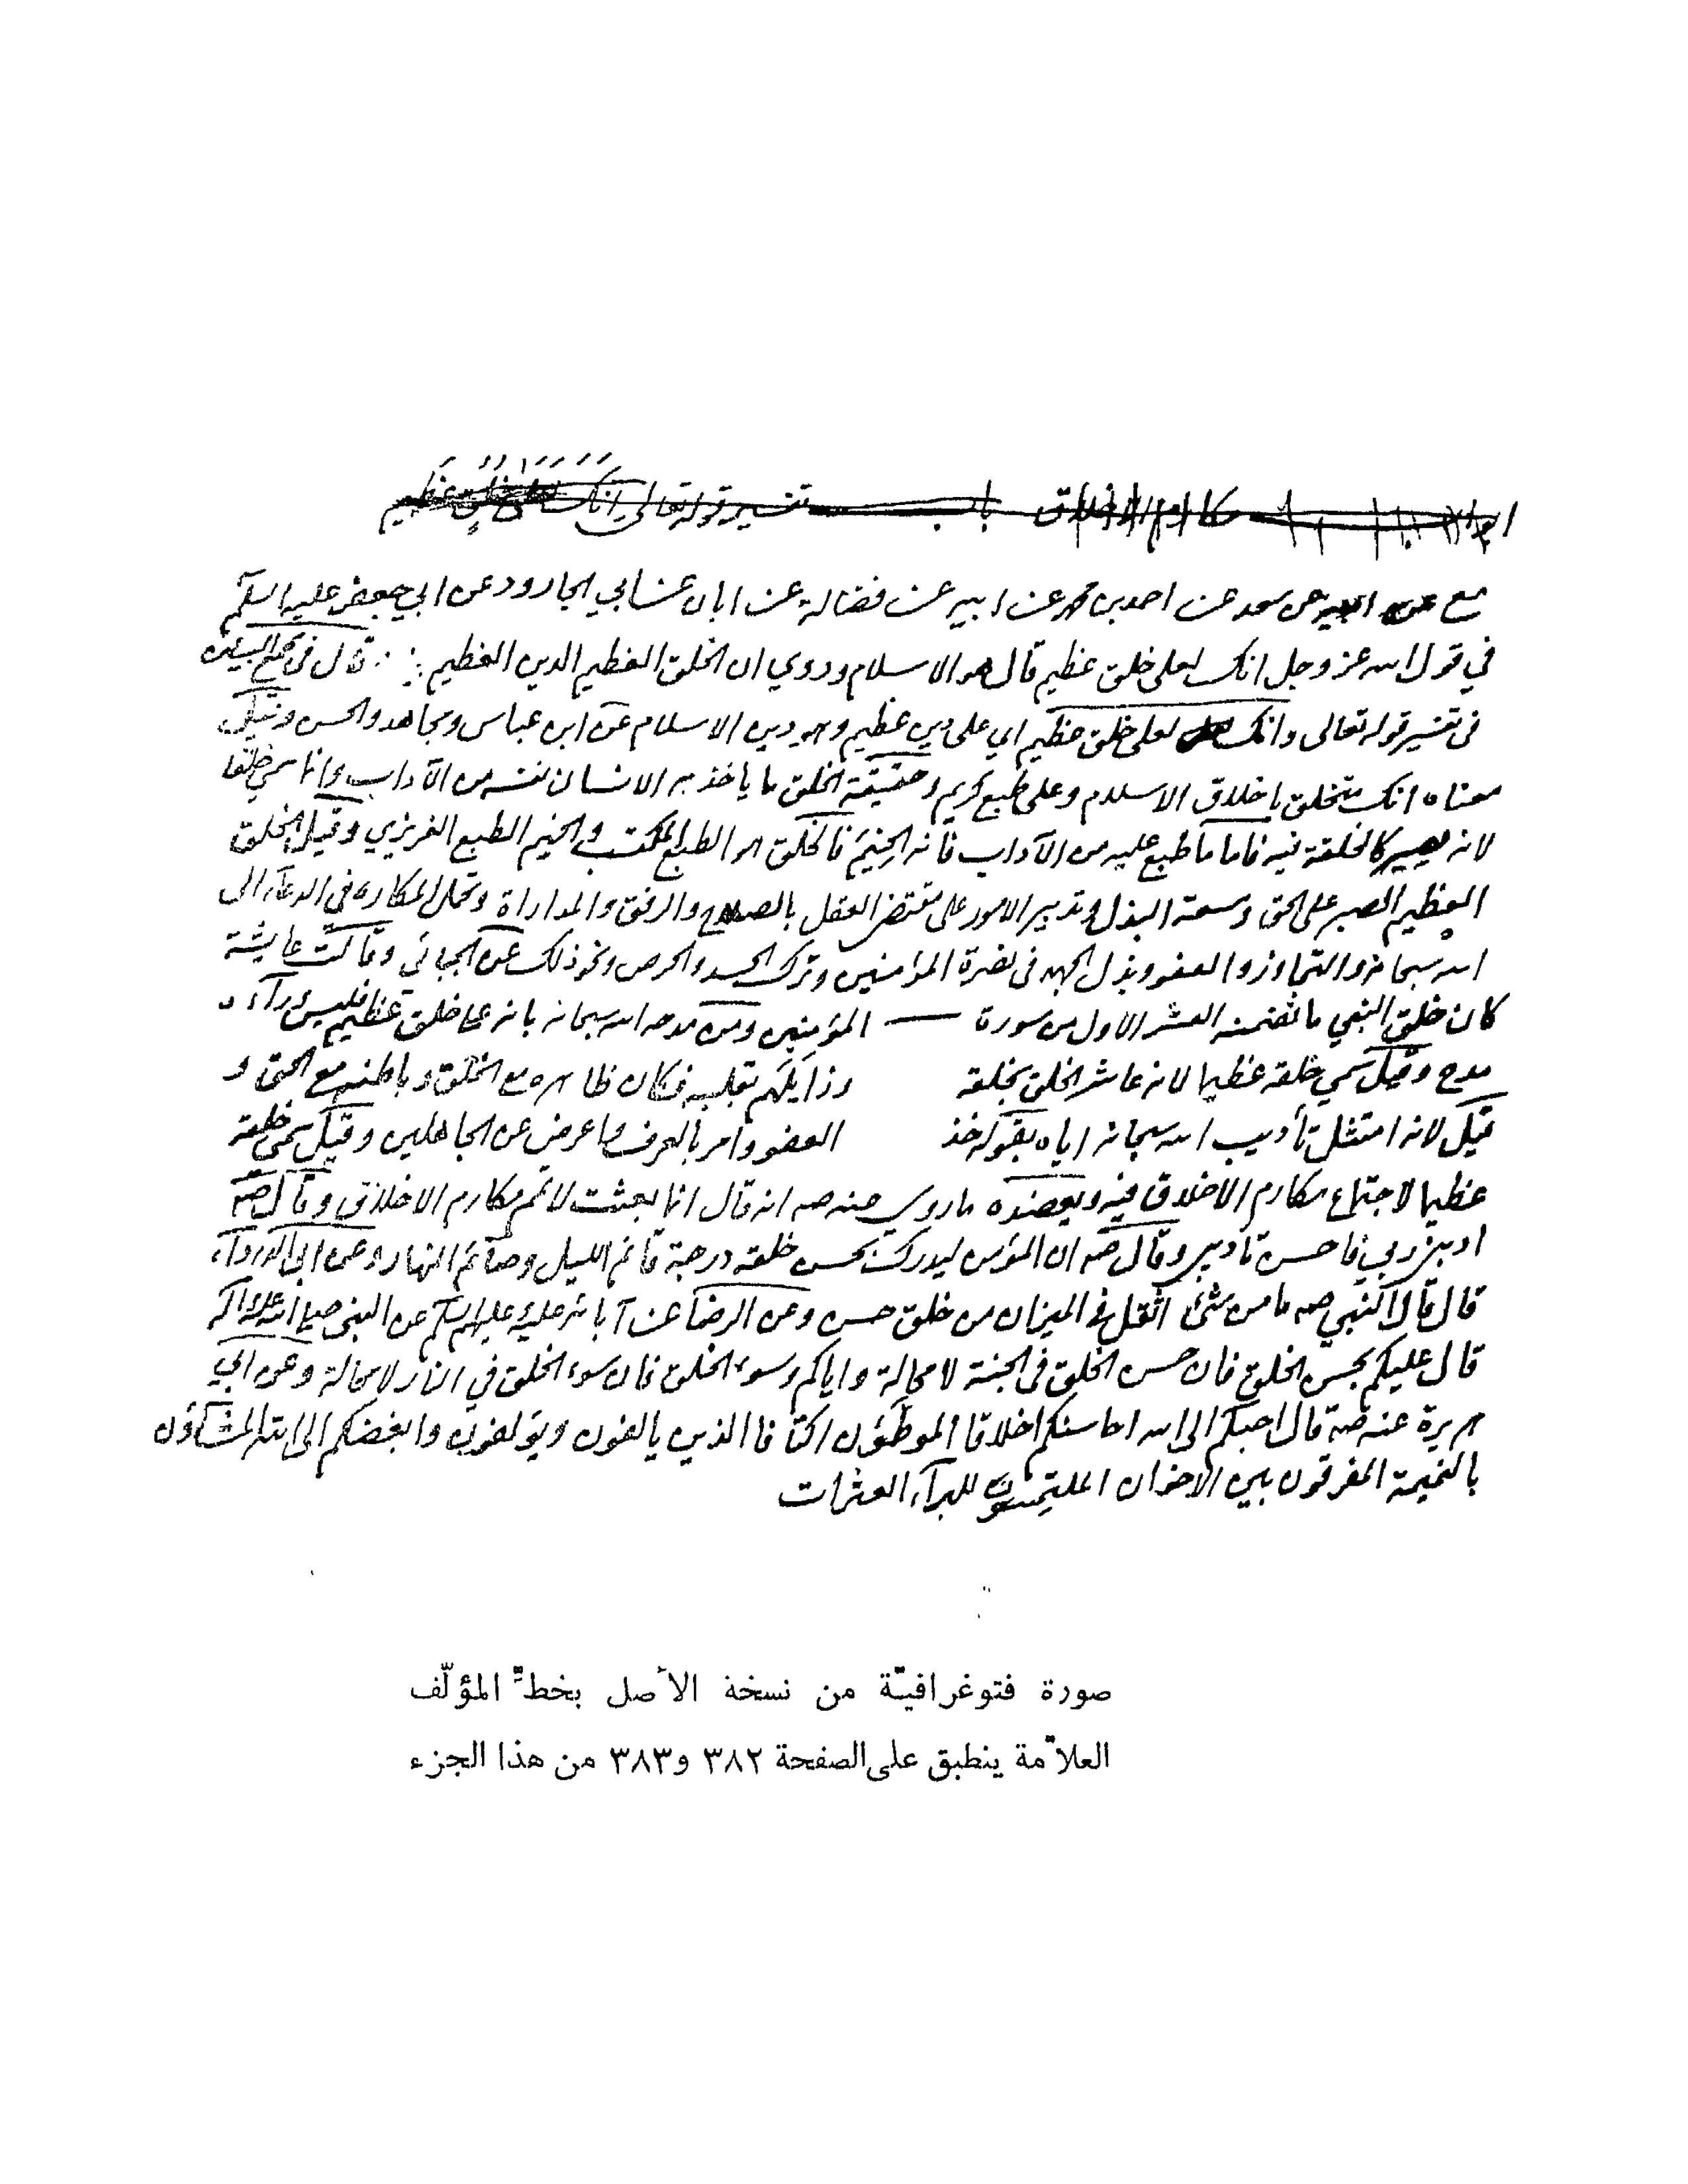 مكارم الاخلاق باب تفسير قوله تعالى انك لعلى خلق عظيم
مع عن سعد عن احمد بن محمد عن ابيه عن فضالة عن ابان عن ابي الجارود عن ابي جعفر عليه السلم
في قول الله عز وجل انك لعلى خلق عظيم قال هو الاسلام وروي ان الخلق العظيم الدين العظيم قال في مجمع البيان
في تفسير قوله تعالى وانك لعلى خلق عظيم اي على دين عظيم وهو دين الاسلام عن ابن عباس ومجاهد والحسن وقيل
معناه انك متخلق باخلاق الاسلام وعلى طبع كريم وحقيقة الخلق ما ياخذ به الانسان نفسه من الآداب وانما سمي خلقا
لانه يصير كالخلقة فيه فاما ما طبع عليه من الآداب فانه الخيم فالخلق هو الطبع المكتسب والخيم الطبع الغريزي وقيل الخلق
العظيم الصبر على الحق وسعة البذل وتدبير الامور على مقتضى العقل بالصلاح والرفق والمداراة وتحمل المكاره في الدعاء الى
الله سبحانه والتجاوز والعفو وبذل الجهد في نصرة المؤمنين وترك الحسد والحرص ونحو ذلك عن الجبائي وقالت عايشة
كان خلق النبي ما تضمنه العشر الاول من سورة المؤمنين ومن مدحه الله سبحانه بانه على خلق عظيم فليس وراء
مدح وقيل سمي خلقه عظيما لانه عاشر الخلق بخلقه وزايلهم بقلبه فكان ظاهره مع الخلق وباطنه مع الحق و
قيل لانه امتثل تأديب الله سبحانه اياه بقوله خذ العفو وامر بالعرف واعرض عن الجاهلين وقيل سمي خلقه
عظيما لاجتماع مكارم الاخلاق فيه ويعضده ما روي عنه صه انه قال انما بعثت لاتمم مكارم الاخلاق وقال صه
ادبني ربي فاحسن تأديبي وقال صه ان المؤمن ليدرك بحسن خلقه درجة قائم الليل وصائم النهار وعن ابي الدرداء
قال قال النبي صه ما من شئ اثقل في الميزان من خلق حسن وعن الرضا عن آبائه عليه وعليهم السلم عن النبي صلى الله عليه واله
قال عليكم بحسن الخلق فان حسن الخلق في الجنة لا محالة واياكم وسوء الخلق فان سوء الخلق في النار لا محالة وعن ابي
هريرة عنه صه قال احبكم الى الله احاسنكم اخلاقا الموطؤن اكنافا الذين يالفون ويؤلفون وابغضكم الى الله المشاؤن
بالنميمة المفرقون بين الاخوان الملتمسون للبرآء العثرات
صورة فتوغرافيّة من نسخة الأصل بخطّ المؤلّف
العلاّمة ينطبق على الصفحة ٣٨٢ و٣٨٣ من هذا الجزء